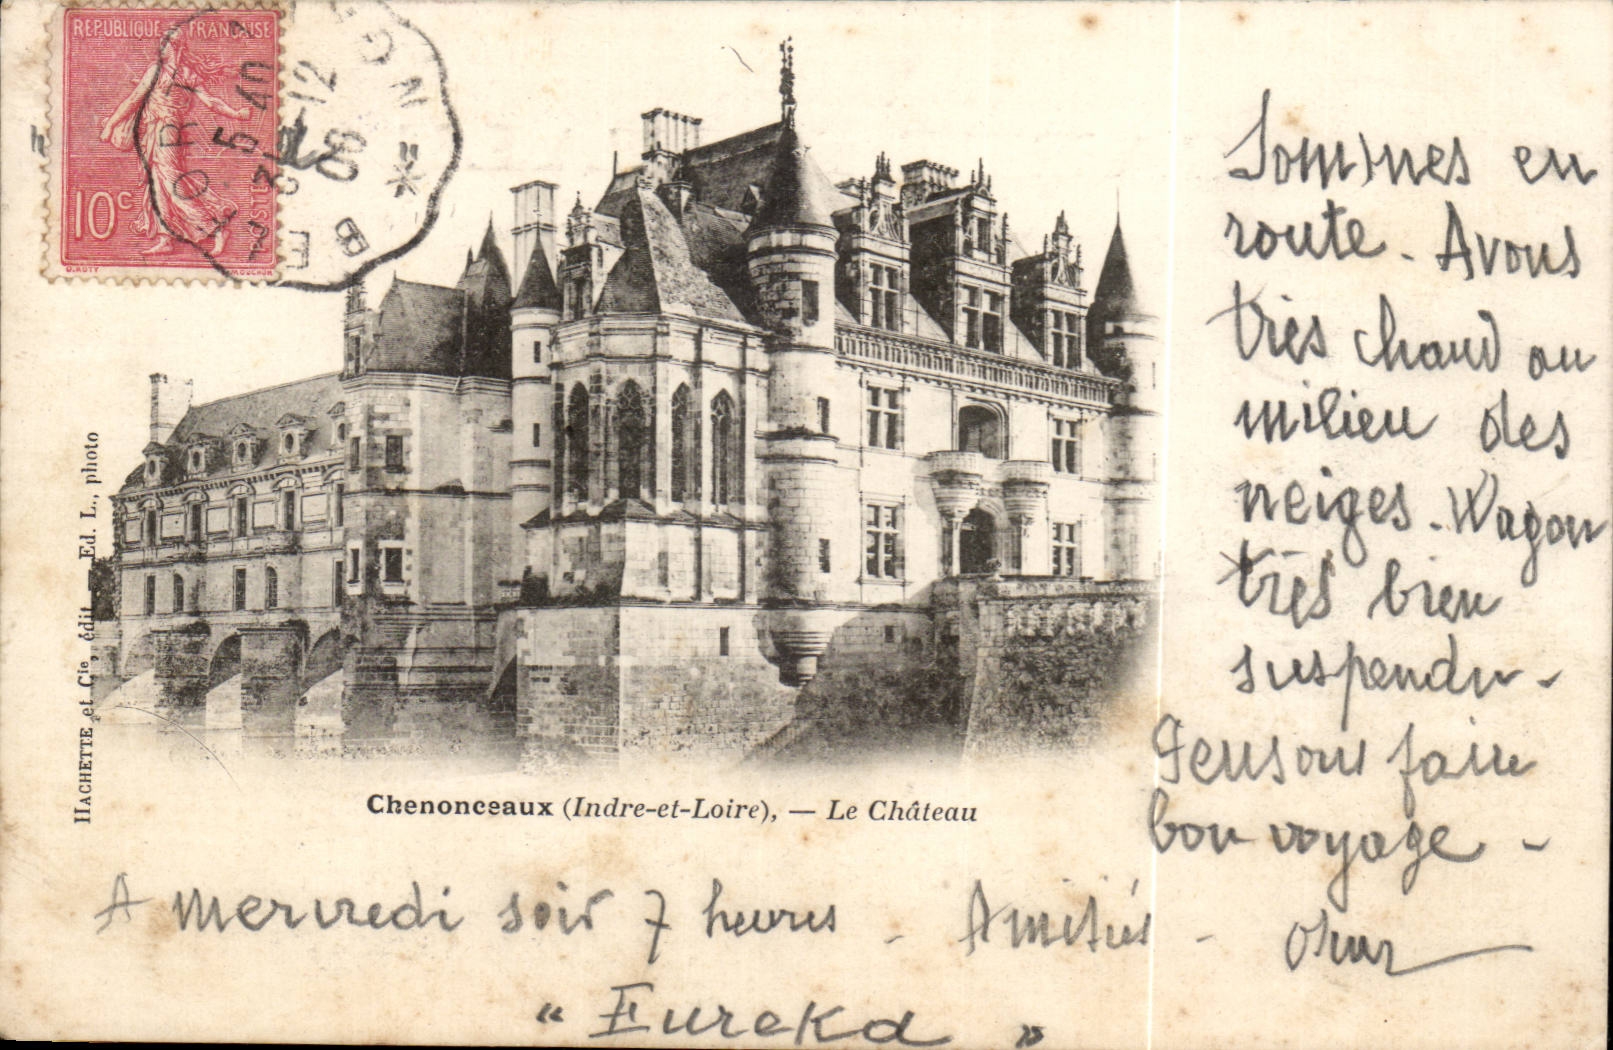 REPUBLIQUE FRANÇAISE
10c
POSTES
O. ROTY
MOUCHON
5 AV
31-12
06
HACHETTE et Cie, édit. — Ed. L., photo
Chenonceaux (Indre-et-Loire), — Le Château
Sommes en
route. Avons
très chaud au
milieu des
neiges. Wagon
très bien
suspendu -
Pensons faire
bon voyage -
A mercredi soir 7 heures - Amitiés -
" Eureka "